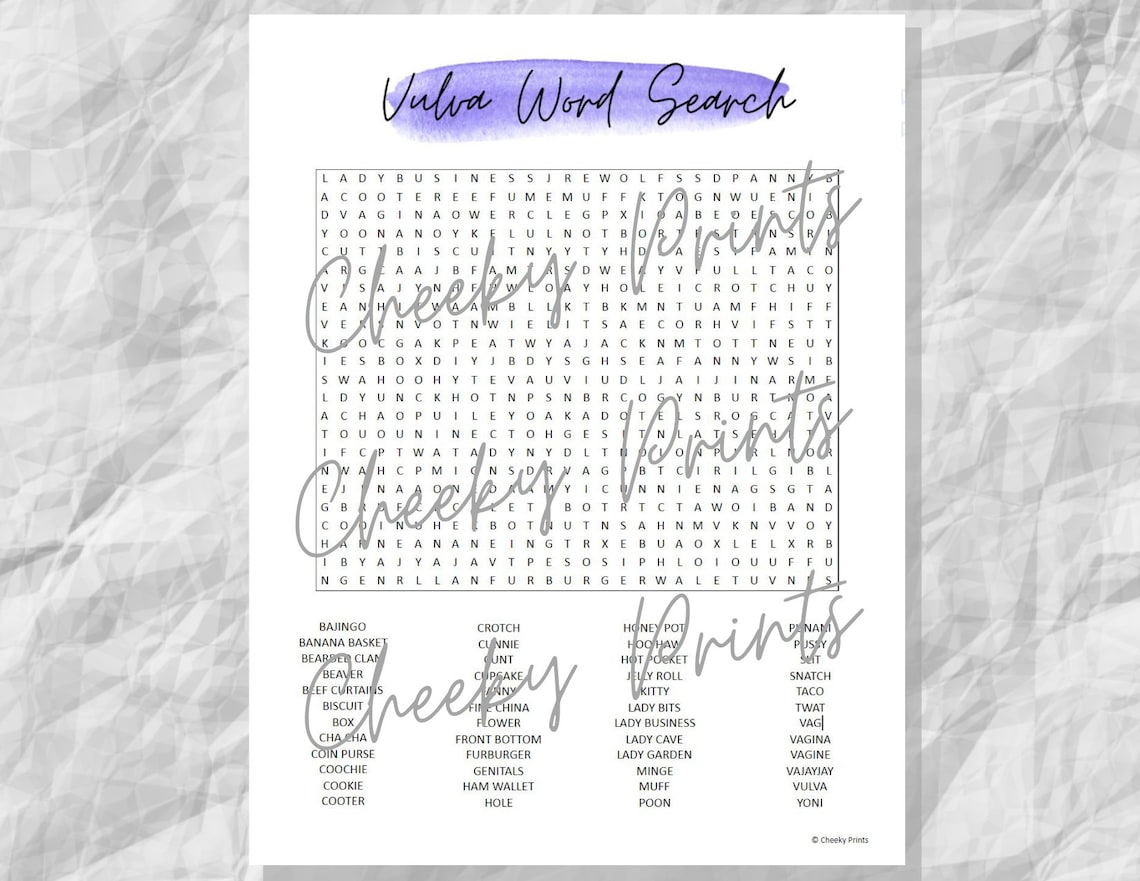 Vulva Word Search
L A D Y B U S I N E S S J R E W O L F S S D P A N N Y B
A C O O T E R E E F U M E M U F F K T O G N W U E N T
D V A G I N A O W E R C L E G P X I O A B E O E S C O B
Y O O N A N O Y K E L U L N O T B O R T E S T N S R I
C U T T B I S C U I T N Y Y T Y H D A E S I F A M I N
A R G C A A J B F A M R S D W E A Y V F U L L T A C O
V S A J Y N H F W O A Y H O L E I C R O T C H U Y
E A N H W A A M B L L K T B K M N T U A M F H I F F
V E N V O T N W I E L I T S A E C O R H V I F S T T
K O O C G A K P E A T W Y A J A C K N M T O T T N E U Y
I E S B O X D I Y J B D Y S G H S E A F A N N Y W S I B
S W A H O O H Y T E V A U V I U D L J A I J I N A R M E
L D Y U N C K H O T N P S N B R C O G Y N B U R T N O A
A C H A O P U I L E Y O A K A D O T E L S R O G C A T V
T O U O U N I N E C T O H G E S I T N L A T S E
I F C P T W A T A D Y N Y D L T N O I O N P R L N O R
N W A H C P M I G N S D R V A G P B T C I R I L G I B L
E J N A A O N D A A M Y I C U N N I E N A G S G T A
G B R F C L E T B O T R T C T A W O I B A N D
C O O I N H E B O T N U T N S A H N M V K N V V O Y
H A R N E A N A N E I N G T R X E B U A O X L E L X R B
I B Y A J Y A J A V T P E S O S I P H L O I O U U F F U
N G E N R L L A N F U R B U R G E R W A L E T U V N S
BAJINGO CROTCH HONEY POT PUNANI
BANANA BASKET CUNNIE HOO HAW PUSSY
BEARDED CLAM CUNT HOT POCKET SLIT
BEAVER CUPCAKE JELLY ROLL SNATCH
BEEF CURTAINS FANNY KITTY TACO
BISCUIT FINE CHINA LADY BITS TWAT
BOX FLOWER LADY BUSINESS VAG
CHA CHA FRONT BOTTOM LADY CAVE VAGINA
COIN PURSE FURBURGER LADY GARDEN VAGINE
COOCHIE GENITALS MINGE VAJAYJAY
COOKIE HAM WALLET MUFF VULVA
COOTER HOLE POON YONI
© Cheeky Prints
Cheeky Prints
Cheeky Prints
Cheeky Prints